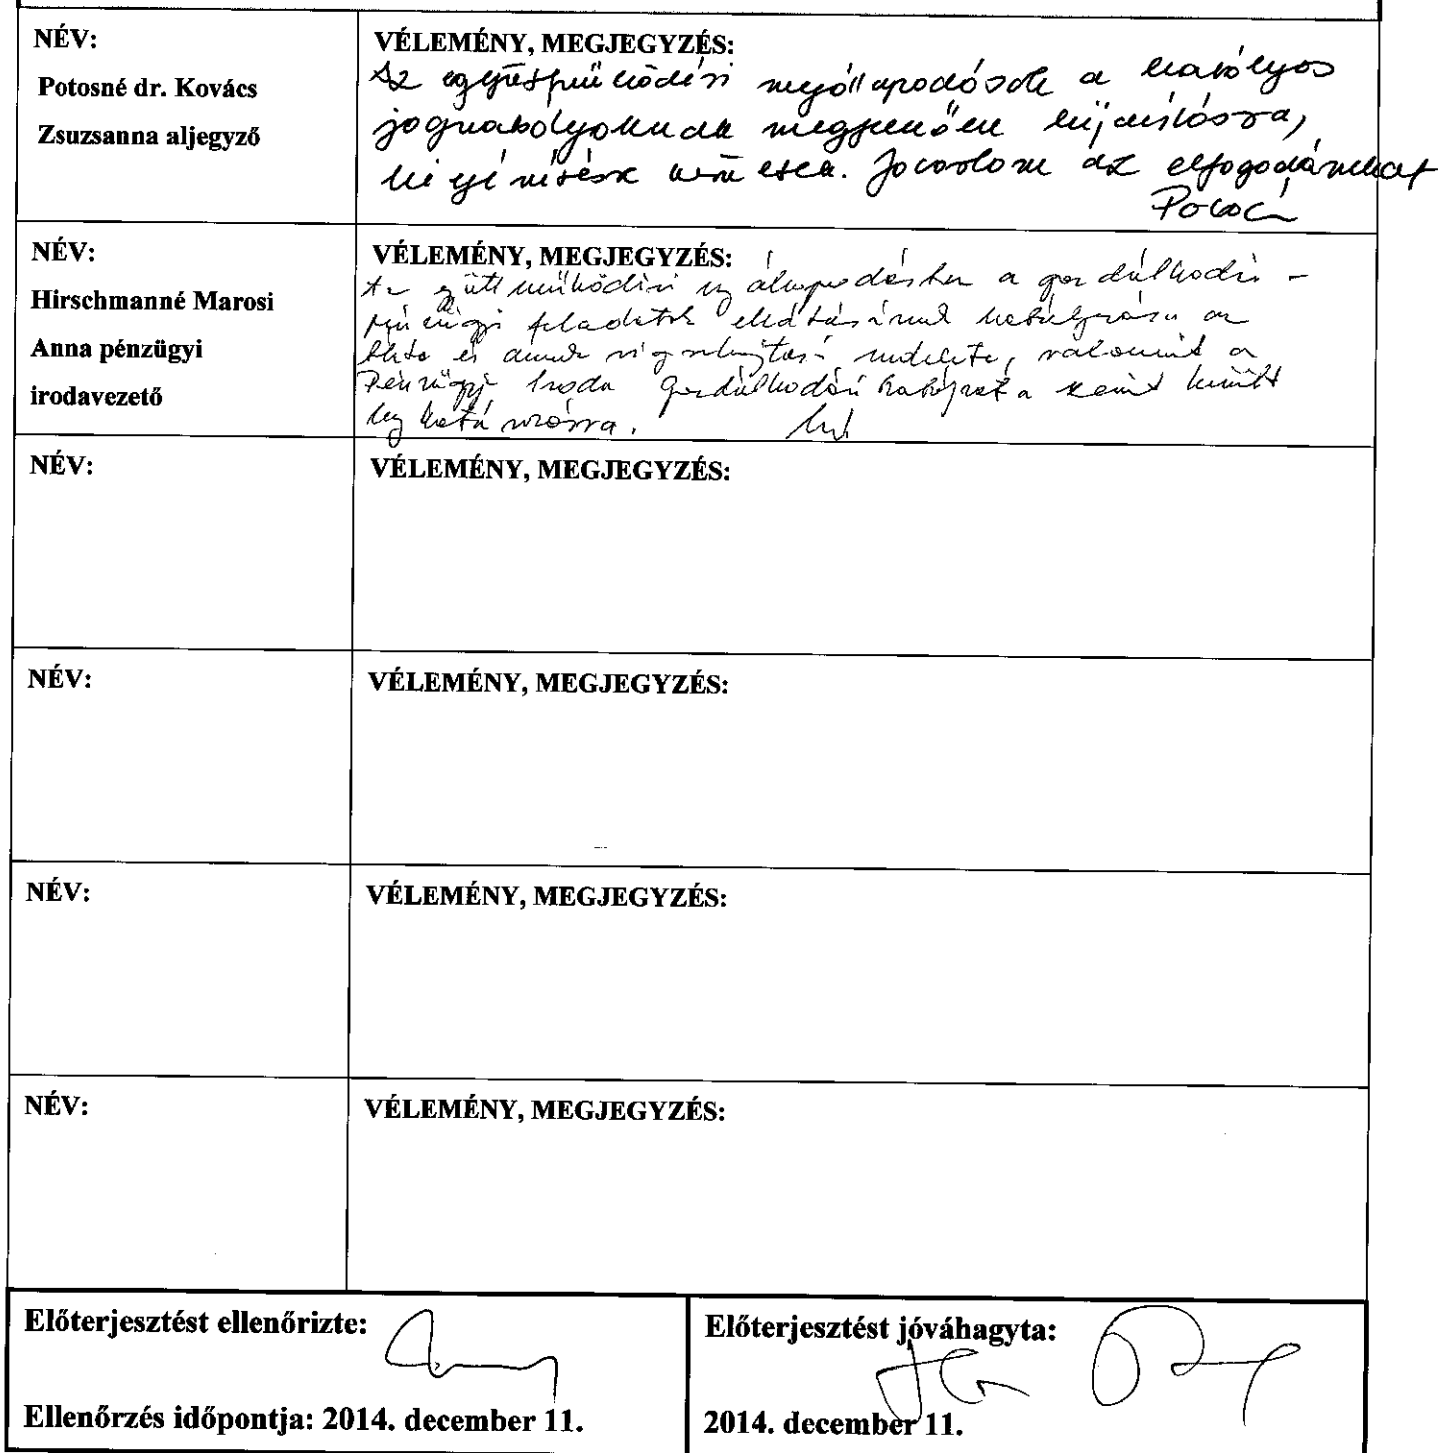 NÉV:
Potosné dr. Kovács
Zsuzsanna aljegyző
VÉLEMÉNY, MEGJEGYZÉS:
Az együttműködési megállapodások a hatályos
jogszabályoknak megfelelően
kiegészítésre kerültek. Javaslom az elfogadásukat
NÉV:
Hirschmanné Marosi
Anna pénzügyi
irodavezető
VÉLEMÉNY, MEGJEGYZÉS:
Az együttműködési megállapodásban a gazdálkodási-
pénzügyi feladatok ellátásának szabályozása az
és annak végrehajtási rendelete, valamint a
Pénzügyi Iroda gazdálkodási szabályzata szerint került
meghatározásra.
NÉV:
VÉLEMÉNY, MEGJEGYZÉS:
NÉV:
VÉLEMÉNY, MEGJEGYZÉS:
NÉV:
VÉLEMÉNY, MEGJEGYZÉS:
NÉV:
VÉLEMÉNY, MEGJEGYZÉS:
Előterjesztést ellenőrizte:
Ellenőrzés időpontja: 2014. december 11.
Előterjesztést jóváhagyta:
2014. december 11.